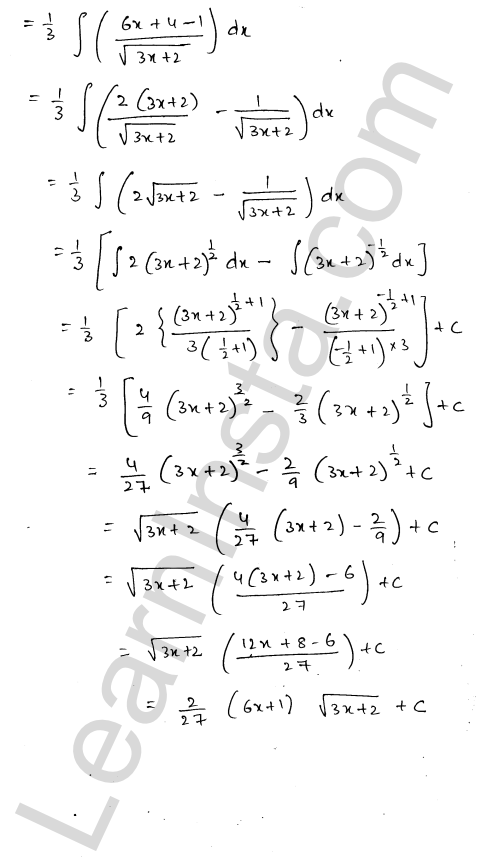 = 1/3 ∫ ( (6x + 4 - 1) / √(3x+2) ) dx
= 1/3 ∫ ( 2(3x+2) / √(3x+2) - 1 / √(3x+2) ) dx
= 1/3 ∫ ( 2√(3x+2) - 1 / √(3x+2) ) dx
= 1/3 [ ∫ 2(3x+2)^(1/2) dx - ∫ (3x+2)^(-1/2) dx ]
= 1/3 [ 2 { (3x+2)^(1/2+1) / 3(1/2+1) } - (3x+2)^(-1/2+1) / (-1/2+1)×3 ] + C
= 1/3 [ 4/9 (3x+2)^(3/2) - 2/3 (3x+2)^(1/2) ] + C
= 4/27 (3x+2)^(3/2) - 2/9 (3x+2)^(1/2) + C
= √(3x+2) ( 4/27 (3x+2) - 2/9 ) + C
= √(3x+2) ( (4(3x+2) - 6) / 27 ) + C
= √(3x+2) ( (12x + 8 - 6) / 27 ) + C
= 2/27 (6x+1) √(3x+2) + C
LearnInsta.com